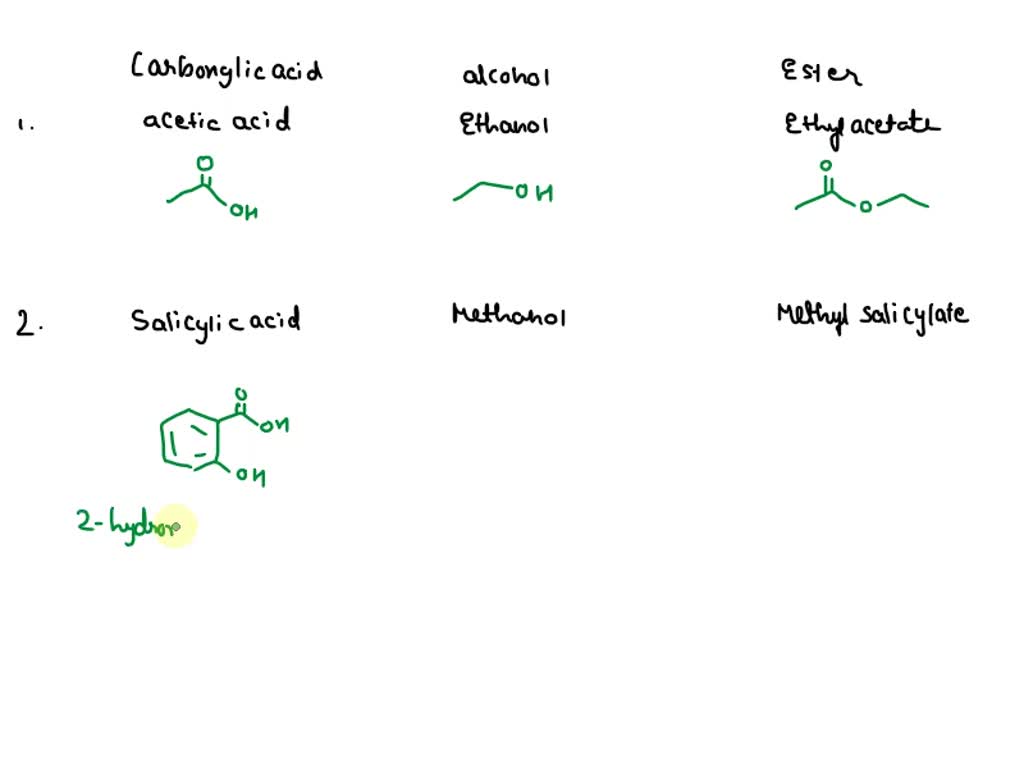 Carbonylic acid alcohol Ester
1. acetic acid Ethanol Ethyl acetate
O O
OH OH O
2. Salicylic acid Methanol Methyl salicylate
O
OH
OH
2-hydror